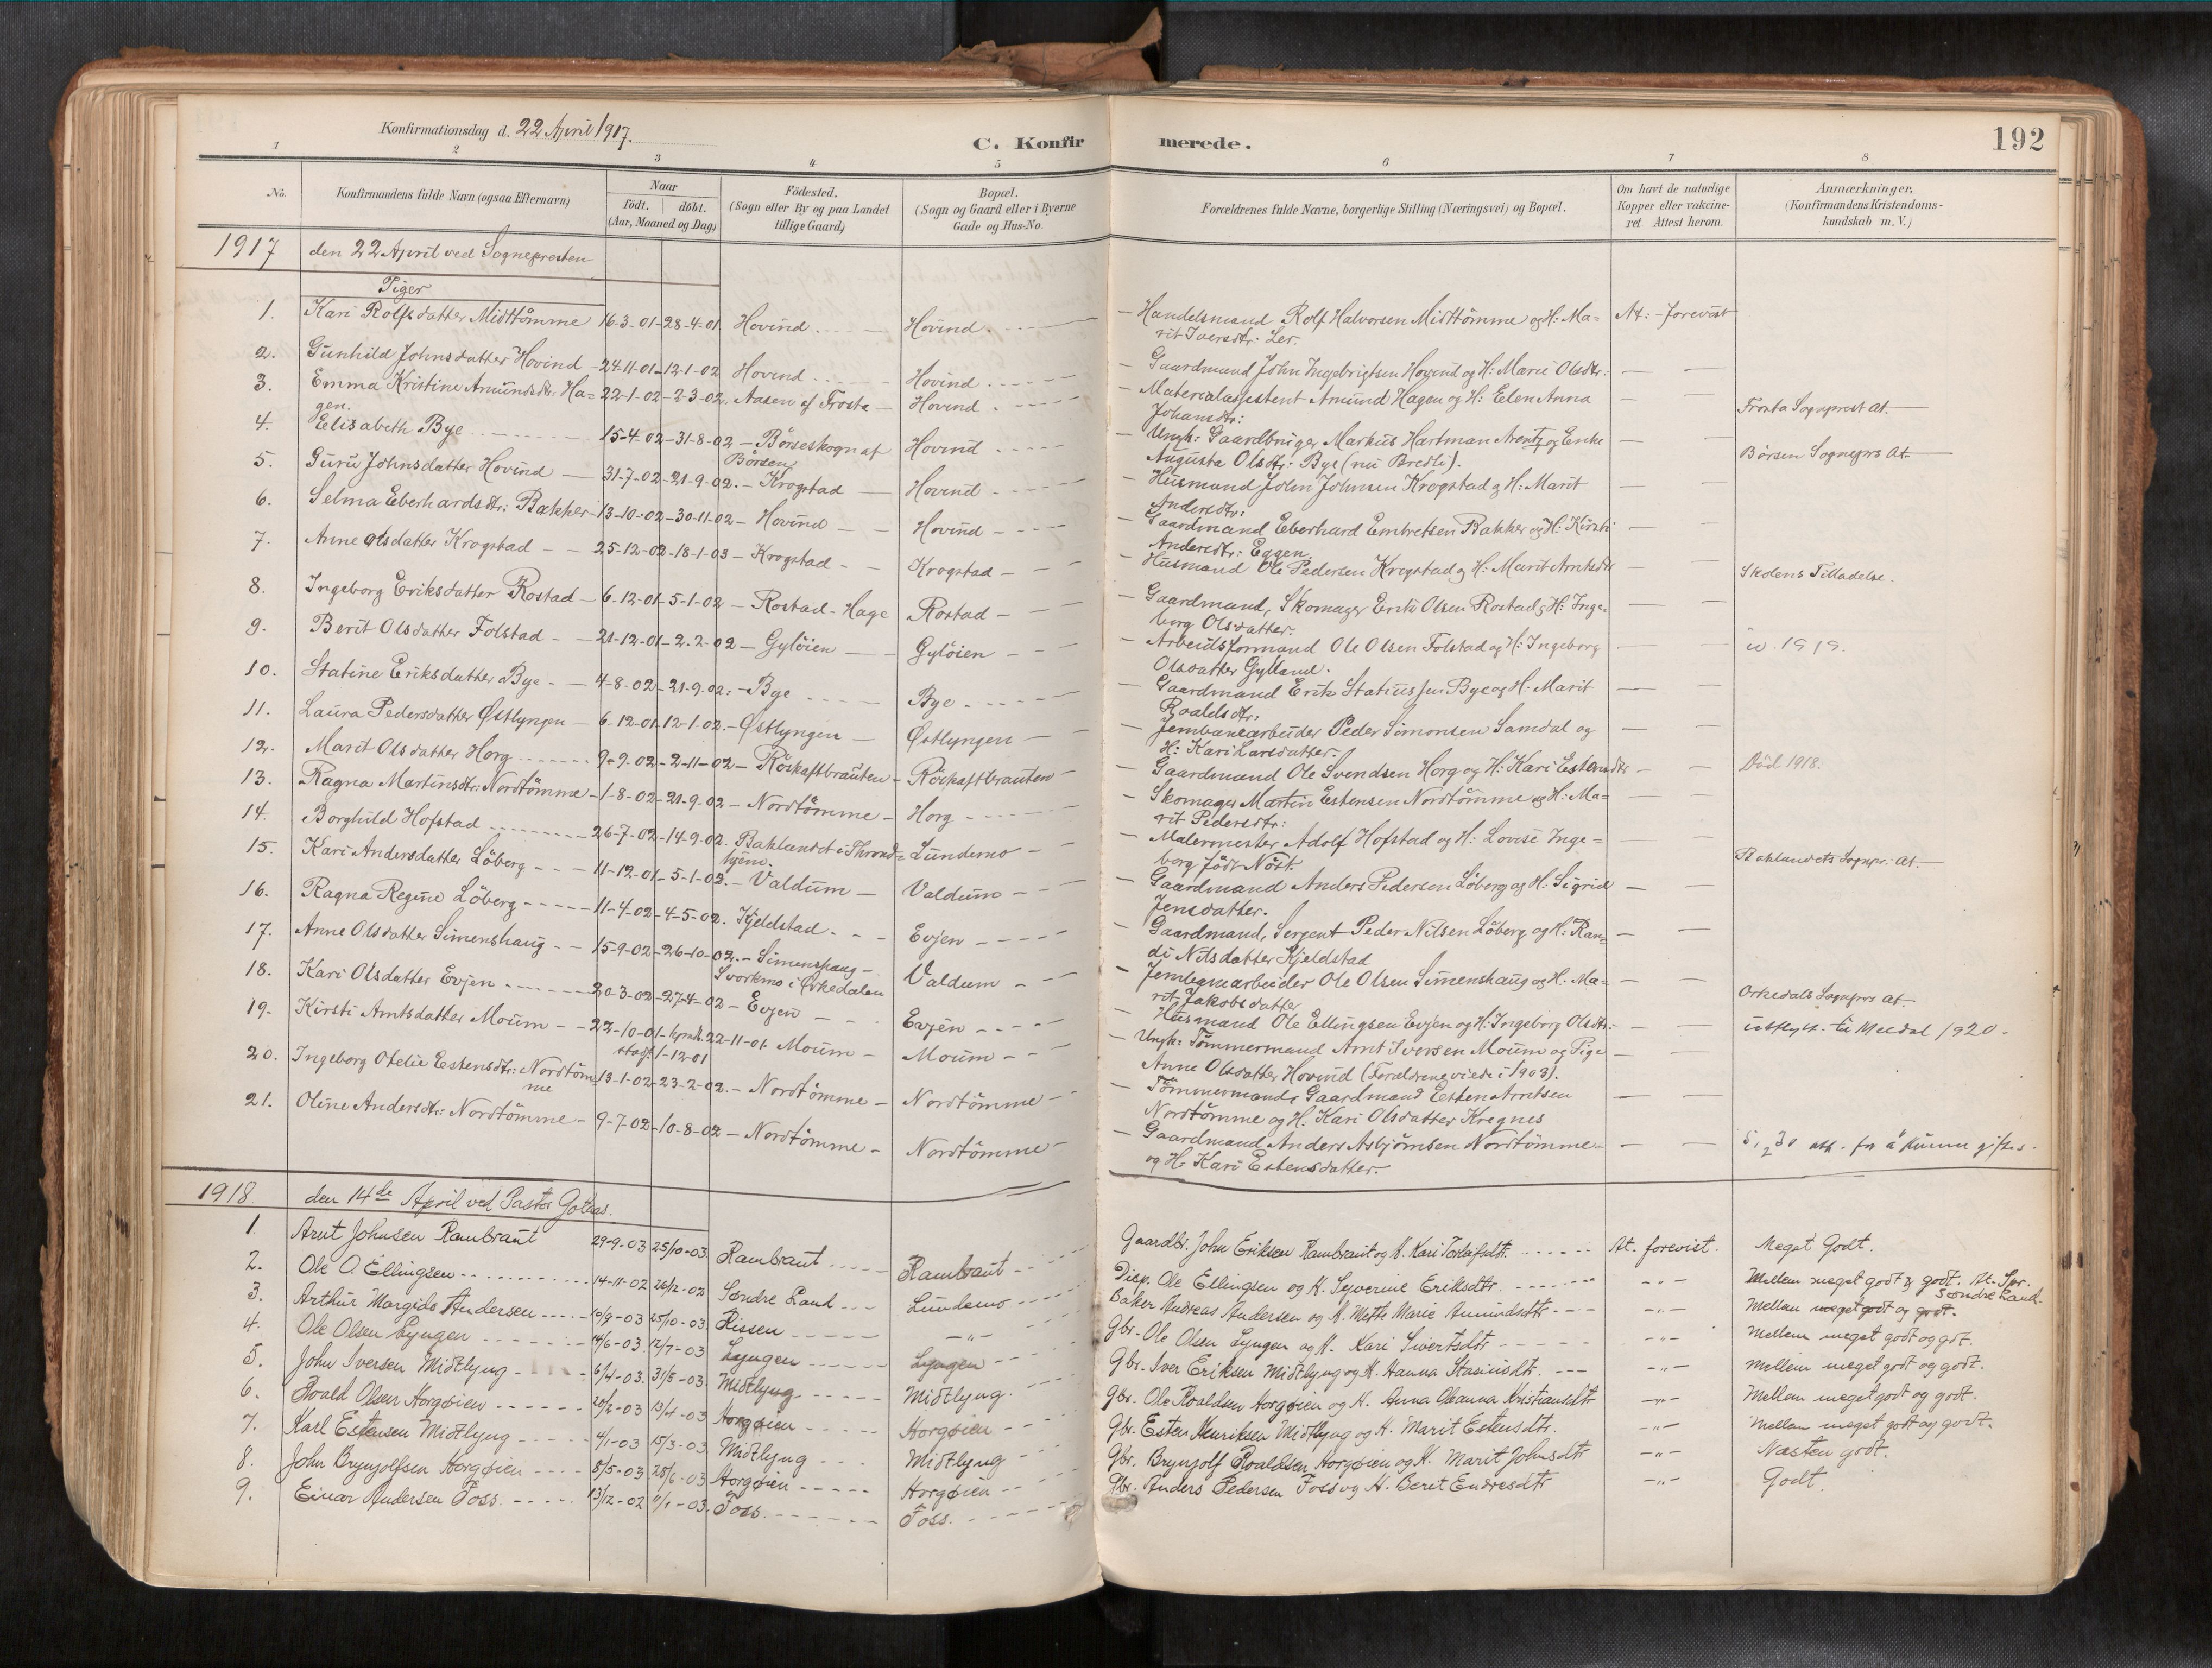 Konfirmationsdag d. 22 April 1917.
C. Konfirmerede.
192
1 2 3 4 5 6 7 8
No. Konfirmandens fulde Navn (ogsaa Efternavn) Naar födt. döbt. (Aar, Maaned og Dag) Födested. (Sogn eller By og paa Landet tillige Gaard) Bopæl. (Sogn og Gaard eller i Byerne Gade og Hus-No. Forældrenes fulde Navne, borgerlige Stilling (Næringsvei) og Bopæl. Om havt de naturlige Kopper eller vaccineret. Attest herom. Anmærkninger. (Konfirmandens Kristendomskundskab m. V.)
1917 den 22 April ved Sognepresten
Piger
1. Kari Rolfsdatter Midttömme 16-3-01 - 28-4-01. Hovind Hovind. Handelsmand Rolf Halvorsen Midttömme og H: Ma=
rit Iversdtr: Ler. At: forevist
2. Gunhild Johnsdatter Hovind 24-11-01 - 12-1-02 Hovind Hovind Gaardmand John Ingebrigtsen Hovind og H: Marit Olsdtr:
3. Emma Kristine Amundsdtr: Ha=
gen. 22-1-02 - 2-3-02. Aasen af Frosta Hovind Materialassistent Amund Hagen og H: Elen Anna
Johansdtr: Frosta Sogneprest At.
4. Elisabeth Bye 15-4-02 - 31-8-02 Börseskogn af
Börsen Hovind Ungk: Gaardbruger Markus Hartman Arentz og Enke
Augusta Olsdtr: Bye (nu Bredli). Börsen Sognepres At.
5. Guru Johnsdatter Hovind 31-7-02 - 21-9-02. Krogstad Hovind Husmand John Johnsen Krogstad og H: Marit
Andersdtr:
6. Selma Eberhardsdtr: Bakker 13-10-02 - 30-11-02 Hovind Hovind Gaardmand Eberhard Embretsen Bakker og H: Kirsti
Andersdtr: Eggen.
7. Anne Olsdatter Krogstad 25-12-02 - 18-1-03 Krogstad Krogstad Husmand Ole Pedersen Krogstad og H: Marit Arntsdtr Skolens Tilladelse.
8. Ingeborg Eriksdatter Rostad 6-12-01 - 5-1-02 Rostad-Hage Rostad Gaardmand, Skomager Erik Olsen Rostad og H: Inge=
borg Olsdatter.
9. Berit Olsdatter Folstad 21-12-01 - 2-2-02 Gylöien Gylöien Arbeidsformand Ole Olsen Folstad og H: Ingeborg
Olsdatter Gylland. 1919.
10. Statine Eriksdatter Bye 4-8-02 - 21-9-02: Bye Bye Gaardmand Erik Statiussen Bye og H: Marit
Roaldsdtr:
11. Laura Pedersdatter Østlyngen 6-12-01 - 12-1-02. Østlyngen Østlyngen Jernbanearbeider Peder Simonsen Samdal og
H: Kari Larsdatter.
12. Marit Olsdatter Horg 9-9-02 - 2-11-02 Röskaftbrauten Röskaftbrauten Gaardmand Ole Svendsen Horg og H: Kari Estensdtr Död 1918.
13. Ragna Martinsdtr: Nordtömme 1-8-02 - 21-9-02 Nordtömme Horg Skomager Martin Estensen Nordtömme og H: Ma=
rit Pedersdtr:
14. Borghild Hofstad 26-7-02 - 14-9-02. Baklandet i Thrond=
hjem. Lundemo Malermester Adolf Hofstad og H: Lovise Inge=
borg födt Nöst. Baklandets Sognpr: At.
15. Kari Andersdatter Löberg 11-12-01 - 5-1-02. Valdum Valdum Gaardmand Anders Pedersen Löberg og H: Sigrid
Jensdatter.
16. Ragna Regine Löberg 11-4-02 - 4-5-02. Kjeldstad Evjen Gaardmand, Sergent Peder Nilsen Löberg og H: Ran=
di Nilsdatter Kjeldstad
17. Anne Olsdatter Simenshaug 15-9-02 - 26-10-02. Simenshaug
Svorkmo i Orkedalen Valdum Jernbanearbeider Ole Olsen Simenshaug og H: Ma=
rit Jakobsdatter Orkedals Sognpres At
18. Kari Olsdatter Evjen 20-3-02 - 27-4-02 Evjen Evjen Husmand Ole Ellingsen Evjen og H: Ingeborg Olsdtr: utflytt. til Meldal 1920.
19. Kirsti Arntsdatter Moum 22-10-01 - hjmdt. 22-11-01
stadf. 1-12-01 Moum Moum Ungk: Tömmermand Arnt Iversen Moum og Pige
Anne Olsdatter Hovind (Forældrene viede i 1903).
20. Ingeborg Otelie Estensdtr: Nordtöm=
me 13-1-02 - 23-2-02. Nordtömme Nordtömme Tömmermand, Gaardmand Esten Arntsen
Nordtömme og H: Kari Olsdatter Kregnes
21. Oline Andersdtr: Nordtömme 9-7-02 - 10-8-02 Nordtömme Nordtömme Gaardmand Anders Asbjörnsen Nordtömme
og H: Kari Estensdatter. att. for å kunne giftes.
1918. den 14de April ved Pastor Gotaas.
1. Arnt Johnsen Rambraut 29-9-03 25/10-03 Rambraut Rambraut Gaardbr. John Eriksen Rambraut og H. Kari Torleifsdtr. At. forevist. Meget Godt.
2. Ole O. Ellingsen 14-11-02 26/12-02 Søndre Land Lundemo Disp. Ole Ellingsen og H. Syverine Eriksdtr. -"- Mellem meget godt & godt. At. Spr.
Søndre Land.
3. Arthur Margido Andersen 10/9-03 25/10-03. Rissen -"- Baker Andreas Andersen og H. Mette Marie Amundsdtr. -"- Mellem meget godt og godt.
4. Ole Olsen Lyngen 14/6-03 12/7-03 Lyngen Lyngen Gbr. Ole Olsen Lyngen og H. Kari Sivertsdtr -"- Mellem meget godt og gdt.
5. John Iversen Midtlyng 6/4-03. 31/5-03. Midtlyng Midtlyng. Gbr. Iver Eriksen Midtlyng og H. Hanna Stasiusdtr. -"- Mellem meget godt og godt.
6. Roald Olsen Horgøien 20/2-03 13/4-03 Horgøien Horgøien Gbr. Ole Roaldsen Horgøien og H. Anna Oleanna Kristiansdtr -"- Mellem meget godt og godt.
7. Karl Estensen Midtlyng 4/1-03 15/3-03 Midtlyng Midtlyng Gbr. Esten Henriksen Midtlyng og H. Marit Estensdtr. -"- Mellem meget godt og godt.
8. John Brynjolfsen Horgøien 8/5-03 28/6-03 Horgøien Horgøien Gbr. Brynjolf Roaldsen Horgøien og H. Marit Johnsdtr -"- Næsten godt.
9. Einar Andersen Foss. 13/12-02 11/1-03. Foss. Foss. Gbr. Anders Pedersen Foss og H. Berit Endresdtr -"- Godt.